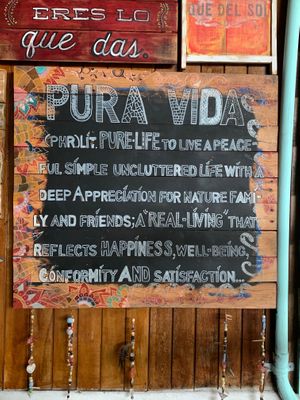 ERES LO
que das.
QUE DEL SOL
PURA VIDA
(PHR)LIT. PURE-LIFE TO LIVE A PEACE-
FUL SIMPLE UNCLUTTERED LIFE WITH A
DEEP APPRECIATION FOR NATURE FAMI-
LY AND FRIENDS; A "REAL-LIVING" THAT
REFLECTS HAPPINESS, WELL-BEING,
CONFORMITY AND SATISFACTION...